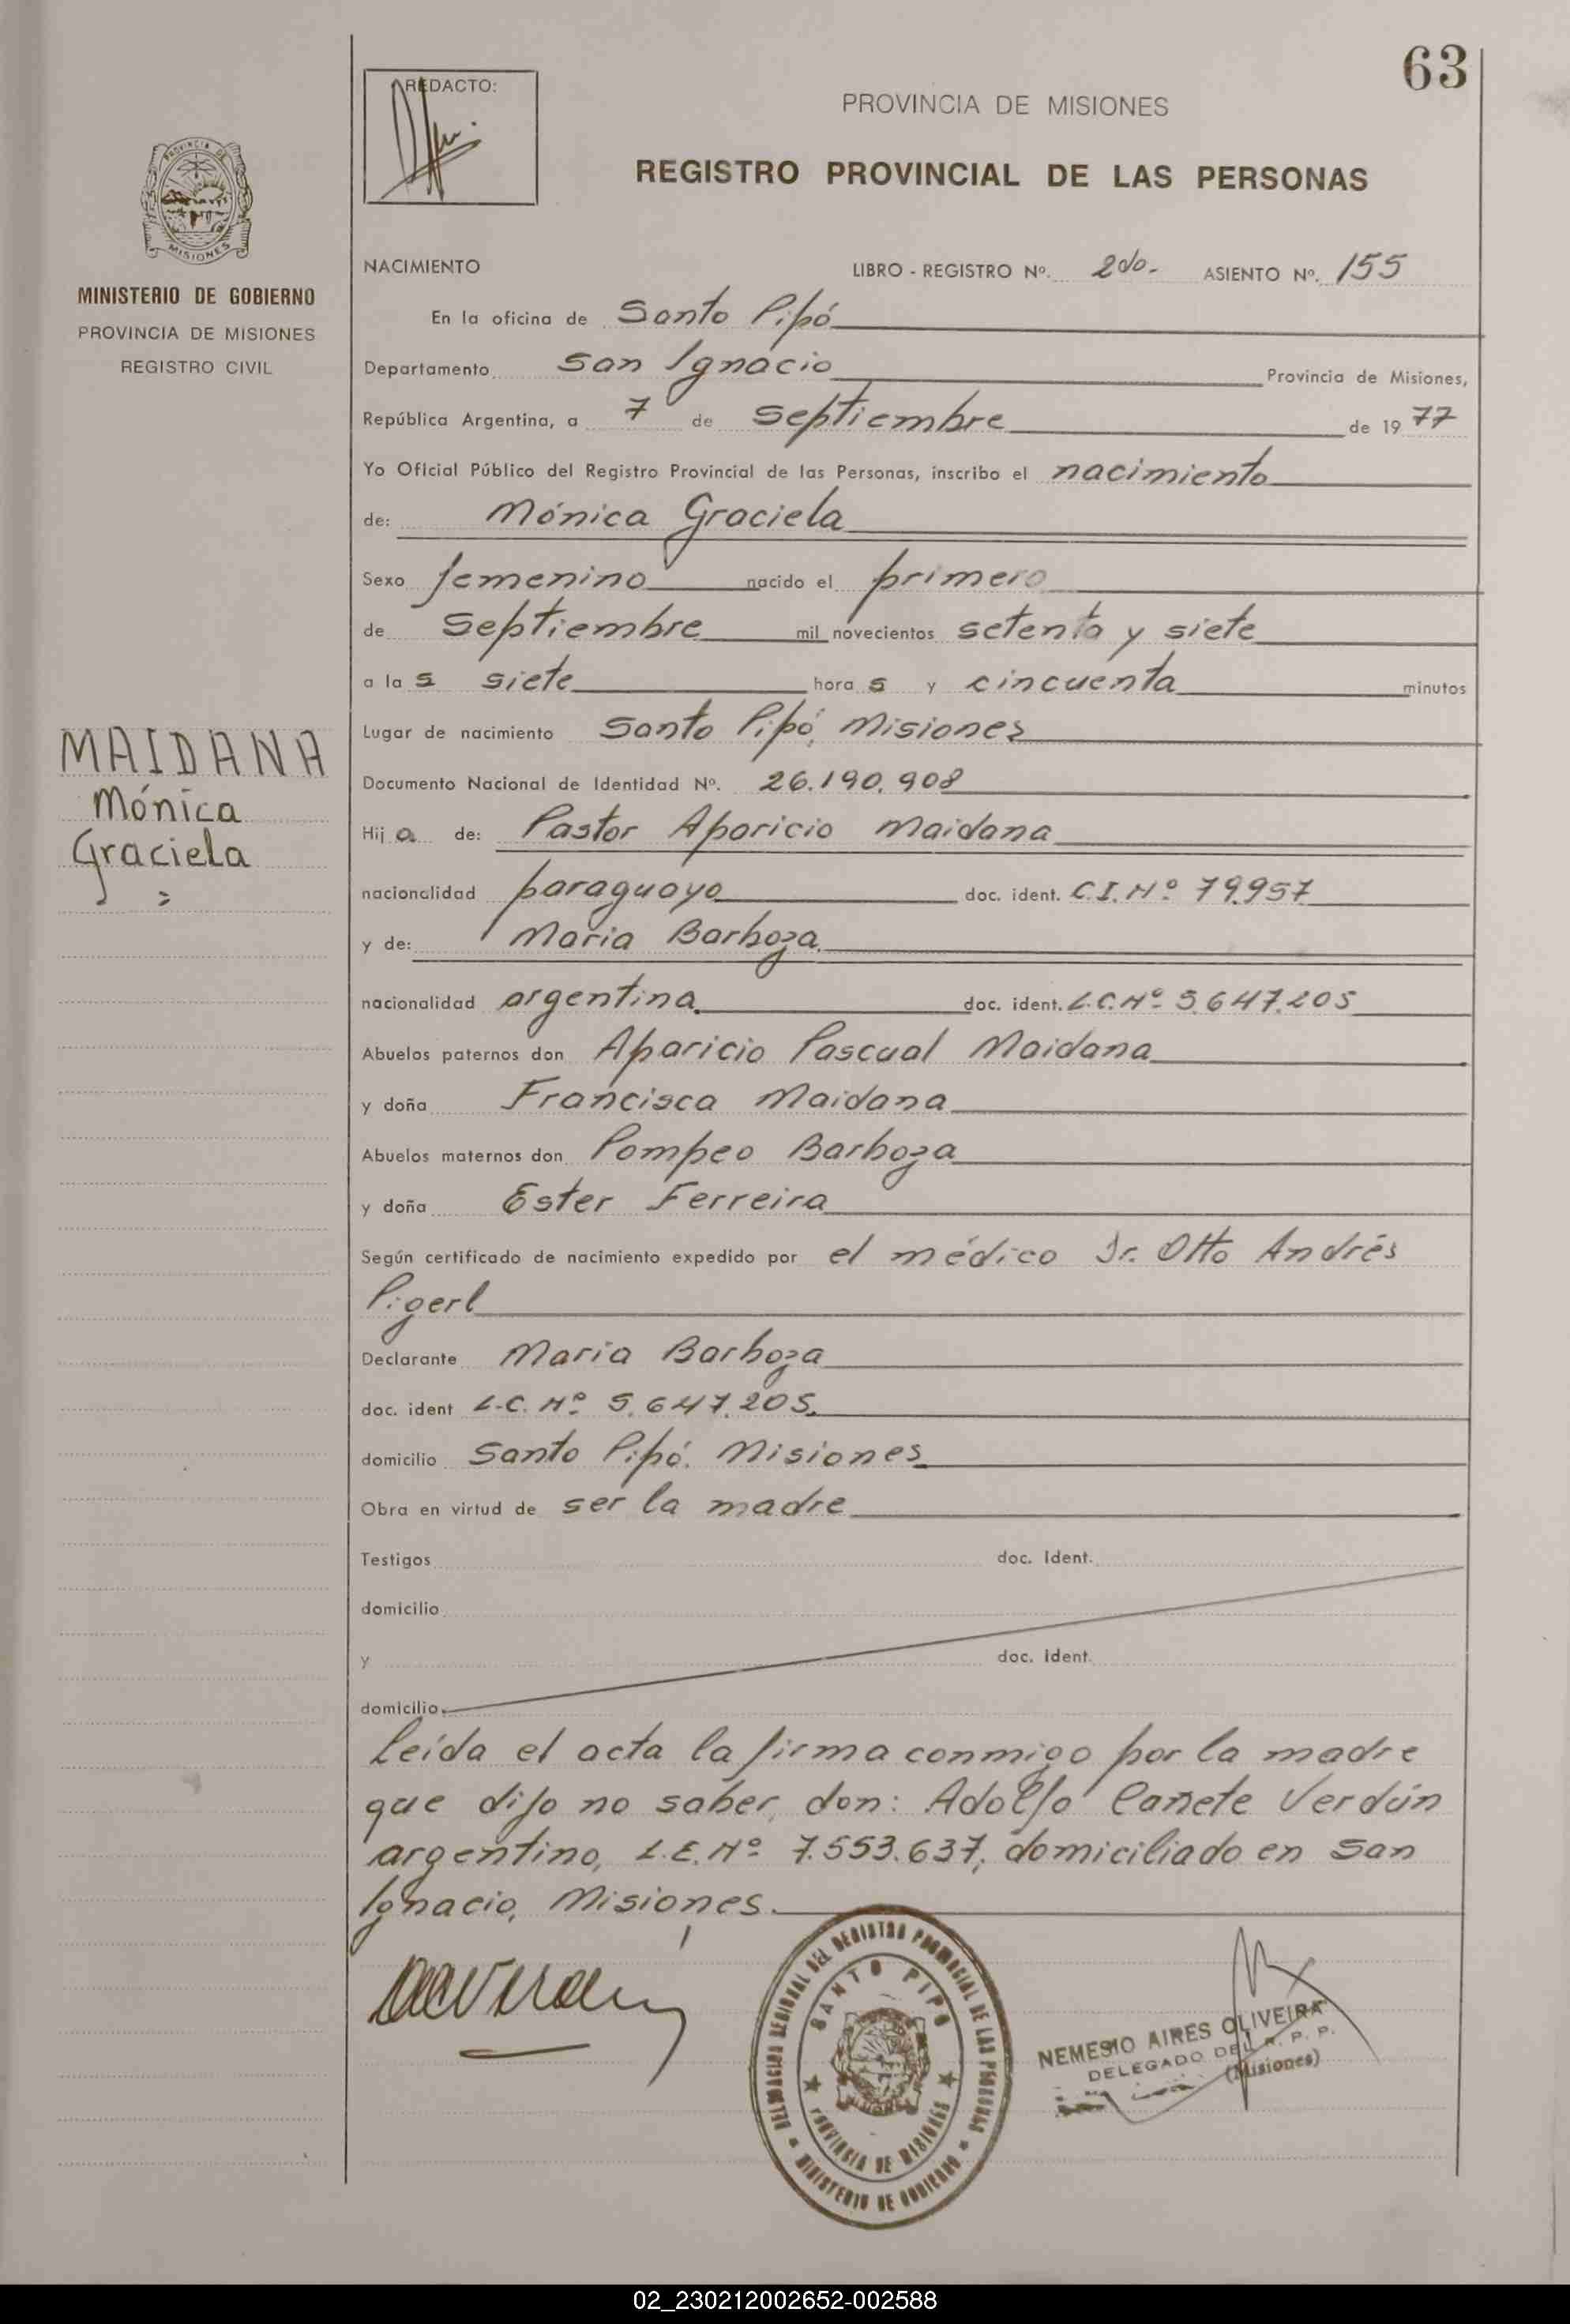 63
REDACTO:
PROVINCIA DE MISIONES
REGISTRO PROVINCIAL DE LAS PERSONAS
PROVINCIA DE
MISIONES
MINISTERIO DE GOBIERNO
PROVINCIA DE MISIONES
REGISTRO CIVIL
NACIMIENTO LIBRO - REGISTRO Nº. 2do- ASIENTO Nº. 155
En la oficina de Santo Pipó
Departamento San Ignacio Provincia de Misiones,
República Argentina, a 7 de Septiembre de 1977
Yo Oficial Público del Registro Provincial de las Personas, inscribo el nacimiento
de: Mónica Graciela
Sexo femenino nacido el primero
de Septiembre mil novecientos setenta y siete
a las siete horas y cincuenta minutos
Lugar de nacimiento Santo Pipó, Misiones
MAIDANA
Mónica
Graciela
Documento Nacional de Identidad Nº. 26.190.908
Hija de: Pastor Aparicio Maidana
nacionalidad paraguayo doc. ident. C.I. Nº 79.957
y de: Maria Barboza
nacionalidad argentina doc. ident. L.C. Nº 5.647.205
Abuelos paternos don Aparicio Pascual Maidana
y doña Francisca Maidana
Abuelos maternos don Pompeo Barboza
y doña Ester Ferreira
Según certificado de nacimiento expedido por el médico Dr. Otto Andrés
Pigerl
Declarante Maria Barboza
doc. ident L.C. Nº 5.647.205.
domicilio Santo Pipó. Misiones
Obra en virtud de ser la madre
Testigos doc. Ident.
domicilio
y doc. Ident.
domicilio
Leída el acta la firma conmigo por la madre
que dijo no saber, don: Adolfo Cañete Verdún
argentino, L.E. Nº 7.553.637, domiciliado en San
Ignacio, Misiones.
DELEGACION REGIONAL DEL REGISTRO PROVINCIAL DE LAS PERSONAS
SANTO PIPO
PROVINCIA DE MISIONES
MINISTERIO DE GOBIERNO
NEMESIO AIRES OLIVEIRA
DELEGADO DEL R. P. P.
(Misiones)
02_230212002652-002588